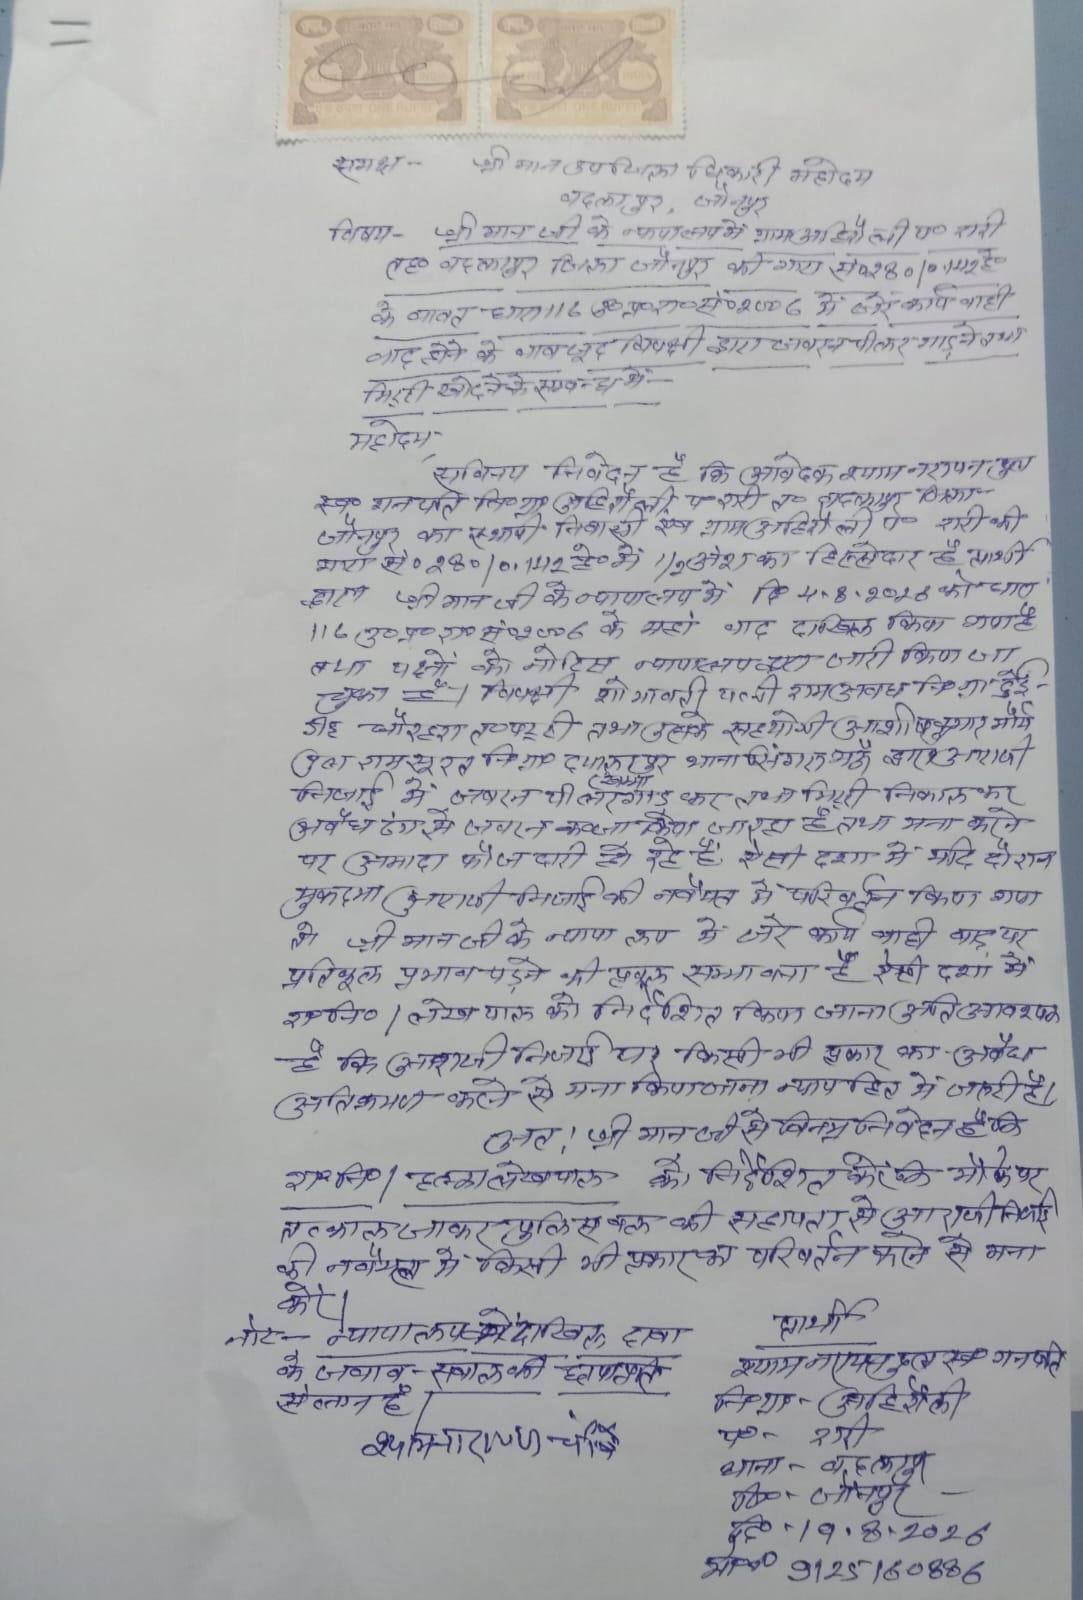 समक्ष - श्री मान उपजिलाधिकारी महोदय
बदलापुर, जौनपुर
विषय - श्री मान जी के न्यायालय में ग्राम अहिरौली प० रारी
तह० बदलापुर जिला जौनपुर की गाटा सं० 280/0.142 हे०
के बावत धारा 116 उ० प्र० रा० सं० 2006 में जेरे कार्यवाही
वाद होने के बावजूद विपक्षी द्वारा जबरन पीलर गाड़ने तथा
मिट्टी खोदने के सम्बन्ध में -
महोदय,
सविनय निवेदन है कि आवेदक श्याम नरायन पुत्र
स्व० गनपति नि० ग्रा० अहिरौली प० रारी त० बदलापुर जिला-
जौनपुर का स्थायी निवासी एवं ग्राम अहिरौली प० रारी की
गाटा सं० 280/0.142 हे० में 1/2 अंश का हिस्सेदार है प्रार्थी
द्वारा श्री मान जी के न्यायालय में दि 4.8.2026 को धारा
116 उ० प्र० रा० सं० 2006 के यहां वाद दाखिल किया गया है
तथा पक्षों को नोटिस न्यायालय द्वारा जारी किया जा
चुका है। विपक्षी शोभावती पत्नी रामअवध नि० ग्रा०
चौरहरा त० पट्टी तथा उसके सहयोगी आशीष कुमार मौर्य
पुत्र रामसूरत नि० ग्रा० दयालापुर थाना सिंगरामऊ द्वारा आराजी
निजाई में जबरन पीलर खम्भा गाड़ कर तथा मिट्टी निकाल कर
अवैध ढंग से जबरन कब्जा किया जा रहा है तथा मना करने
पर अमादा फौजदारी हो रहे हैं ऐसी दशा में यदि दौरान
मुकदमा आराजी निजाई की नवैयत में परिवर्तन किया गया
तो श्री मान जी के न्यायालय में जेरे कार्यवाही वाद पर
प्रतिकूल प्रभाव पड़ने की प्रबल सम्भावना है ऐसी दशा में
रा० नि०/लेखपाल को निर्देशित किया जाना अति आवश्यक
है कि आराजी निजाई पर किसी भी प्रकार का अवैध
अतिक्रमण करने से मना किया जाना न्याय हित में जरूरी है।
अतः श्री मान जी से विनम्र निवेदन है कि
रा० नि०/हल्का लेखपाल को निर्देशित करें कि मौके पर
तत्काल जाकर पुलिस बल की सहायता से आराजी निजाई
की नवैयत में किसी भी प्रकार का परिवर्तन करने से मना
करें।
प्रार्थी
नोट- न्यायालय में दाखिल दावा
के जवाब-सवाल की छायाप्रति
संलग्न है।
श्यामनारायण
श्याम नरायन पुत्र स्व० गनपति
नि० ग्रा०- अहिरौली
प०- रारी
थाना- बदलापुर
जि०- जौनपुर
दि०- 19.8.2026
मो० नं० 9125160886